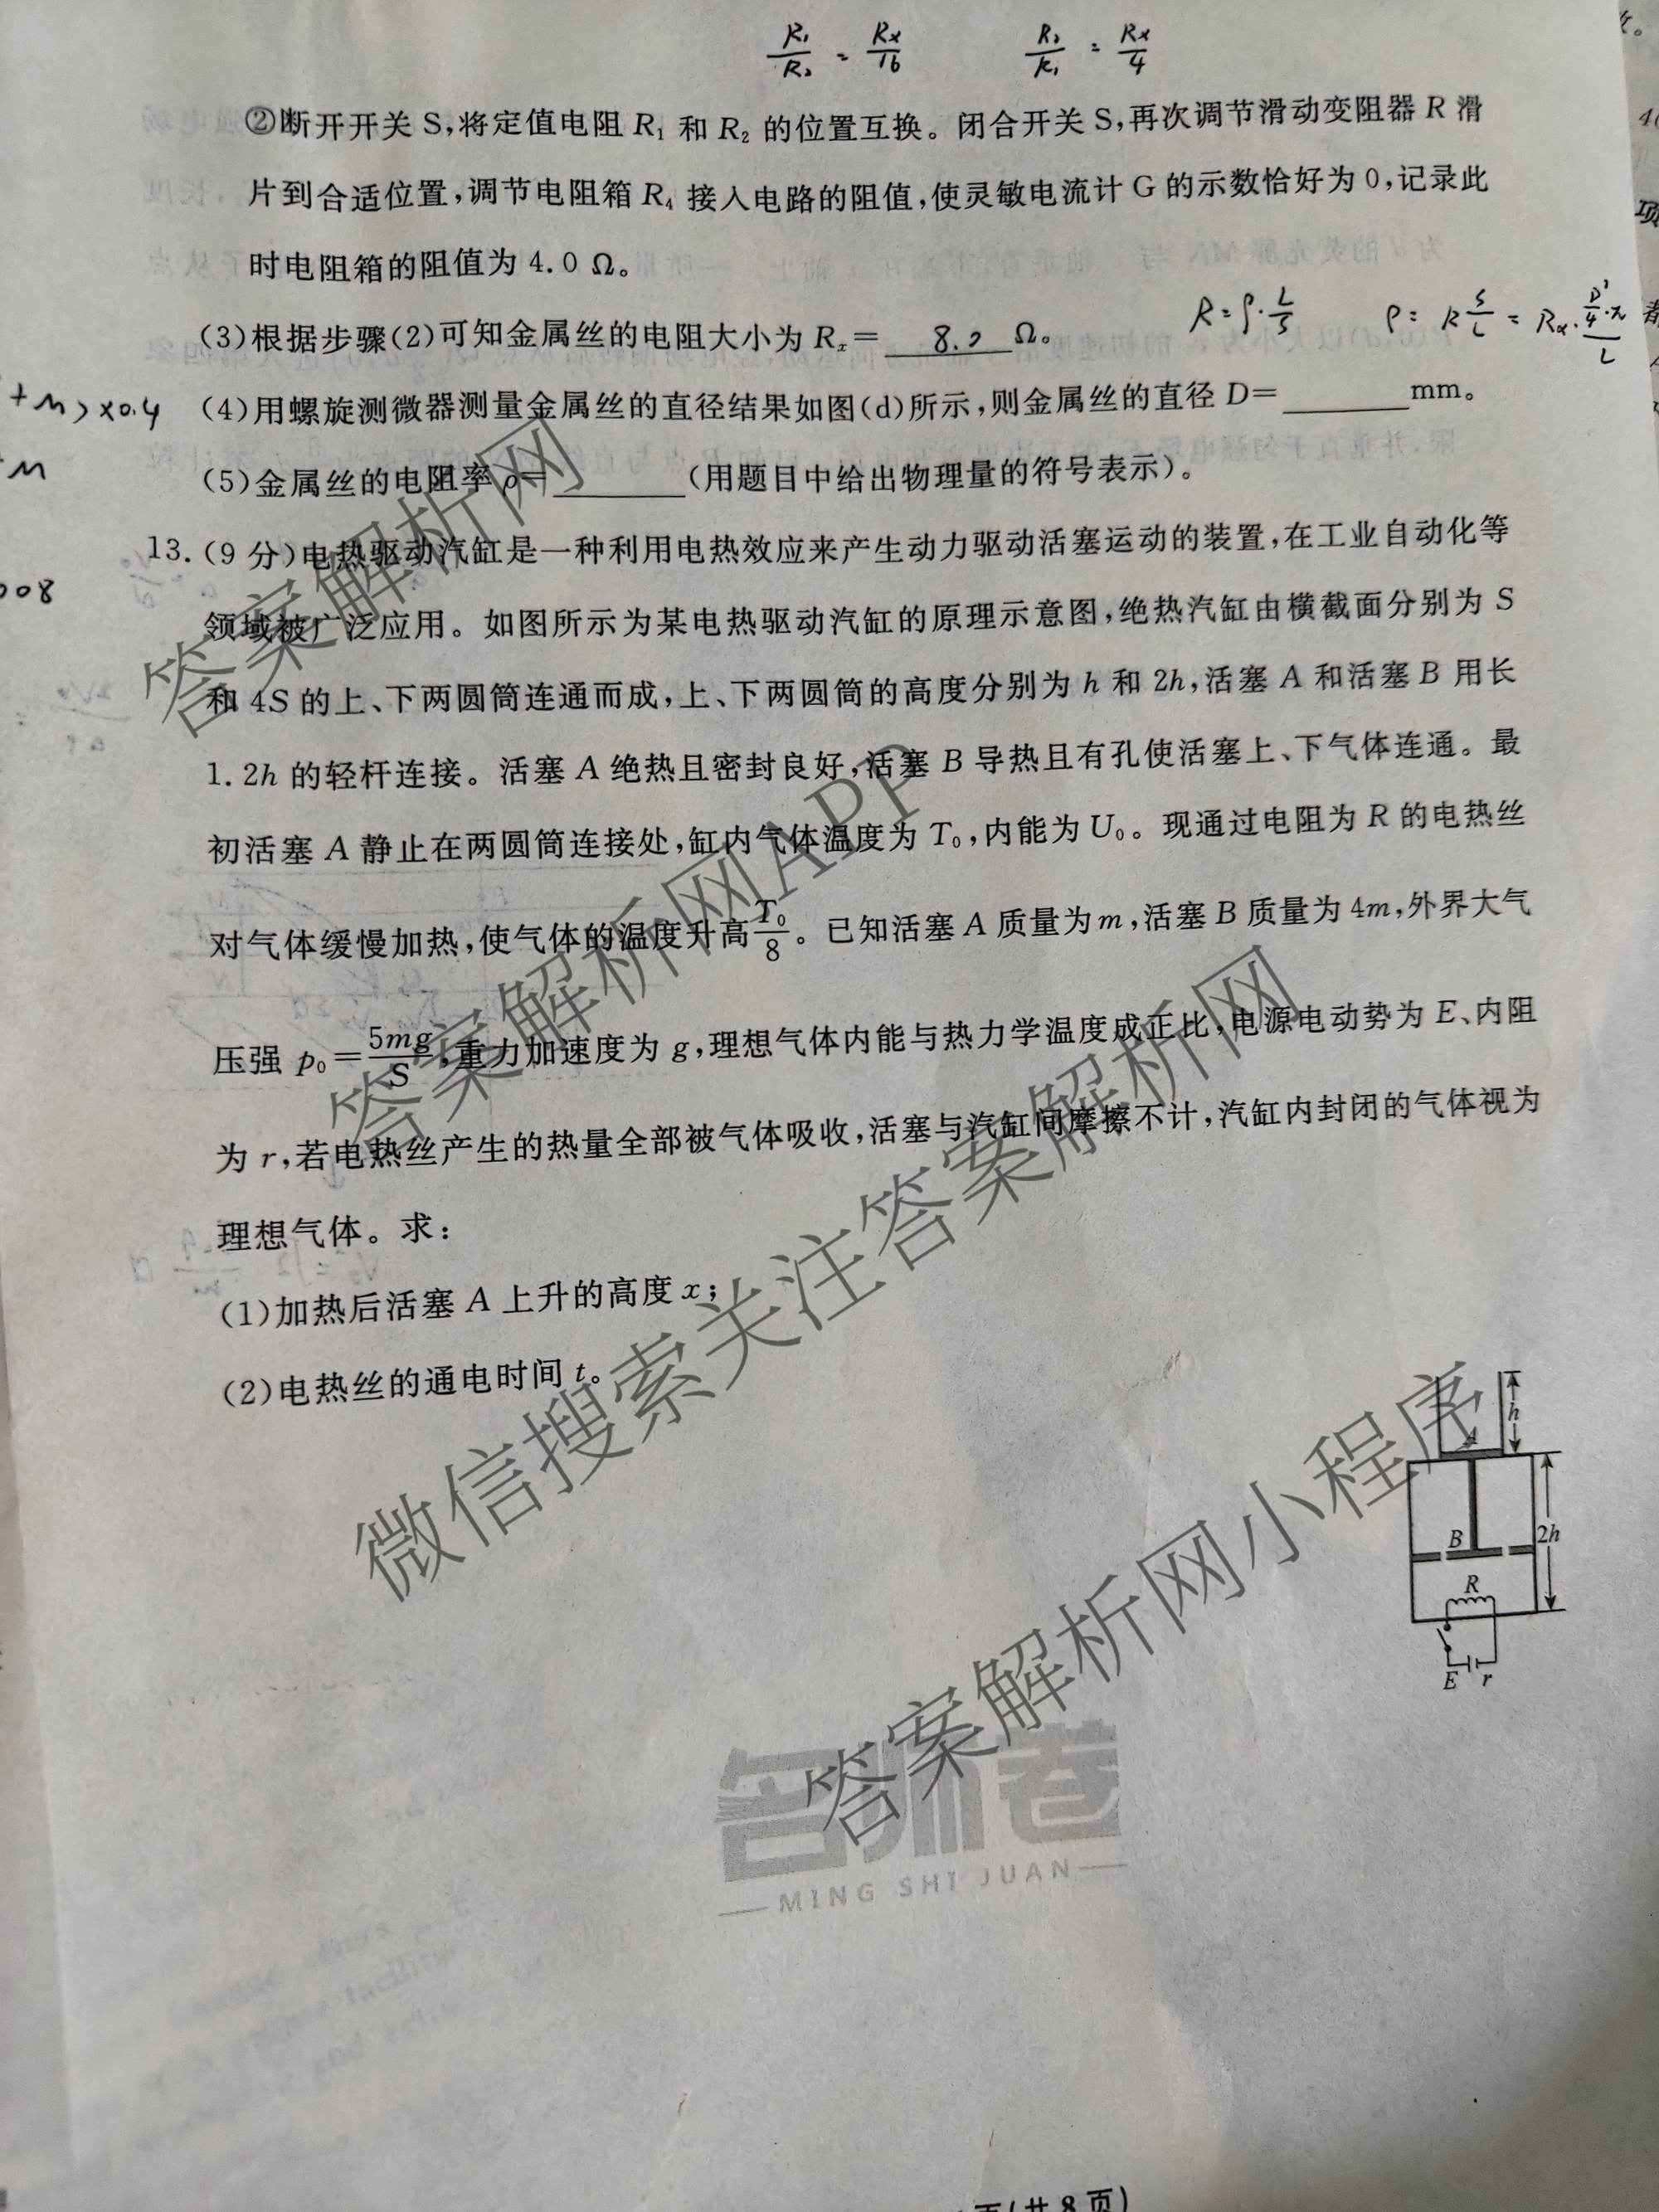 R₁/R₂ = Rx/16  R₂/R₁ = Rx/4
②断开开关 S,将定值电阻 R₁ 和 R₂ 的位置互换。闭合开关 S,再次调节滑动变阻器 R 滑
片到合适位置,调节电阻箱 R₄ 接入电路的阻值,使灵敏电流计 G 的示数恰好为 0,记录此
时电阻箱的阻值为 4.0 Ω。
R=ρ·L/S  ρ= R S/L = Rx·(D²/4·π)/L
(3)根据步骤(2)可知金属丝的电阻大小为 Rₓ= 8.0 Ω。
(4)用螺旋测微器测量金属丝的直径结果如图(d)所示,则金属丝的直径 D=________mm。
(5)金属丝的电阻率 ρ=________(用题目中给出物理量的符号表示)。
13.(9 分)电热驱动汽缸是一种利用电热效应来产生动力驱动活塞运动的装置,在工业自动化等
领域被广泛应用。如图所示为某电热驱动汽缸的原理示意图,绝热汽缸由横截面分别为 S
和 4S 的上、下两圆筒连通而成,上、下两圆筒的高度分别为 h 和 2h,活塞 A 和活塞 B 用长
1.2h 的轻杆连接。活塞 A 绝热且密封良好,活塞 B 导热且有孔使活塞上、下气体连通。最
初活塞 A 静止在两圆筒连接处,缸内气体温度为 T₀,内能为 U₀。现通过电阻为 R 的电热丝
对气体缓慢加热,使气体的温度升高T₀/8。已知活塞 A 质量为 m,活塞 B 质量为 4m,外界大气
压强 p₀=5mg/S,重力加速度为 g,理想气体内能与热力学温度成正比,电源电动势为 E、内阻
为 r,若电热丝产生的热量全部被气体吸收,活塞与汽缸间摩擦不计,汽缸内封闭的气体视为
理想气体。求:
(1)加热后活塞 A 上升的高度 x;
(2)电热丝的通电时间 t。
h
A
B
2h
R
E r
答案解析网
答案解析网APP
微信搜索关注答案解析网
答案解析网小程序
名师卷
MING SHI JUAN
页(共 8 页)